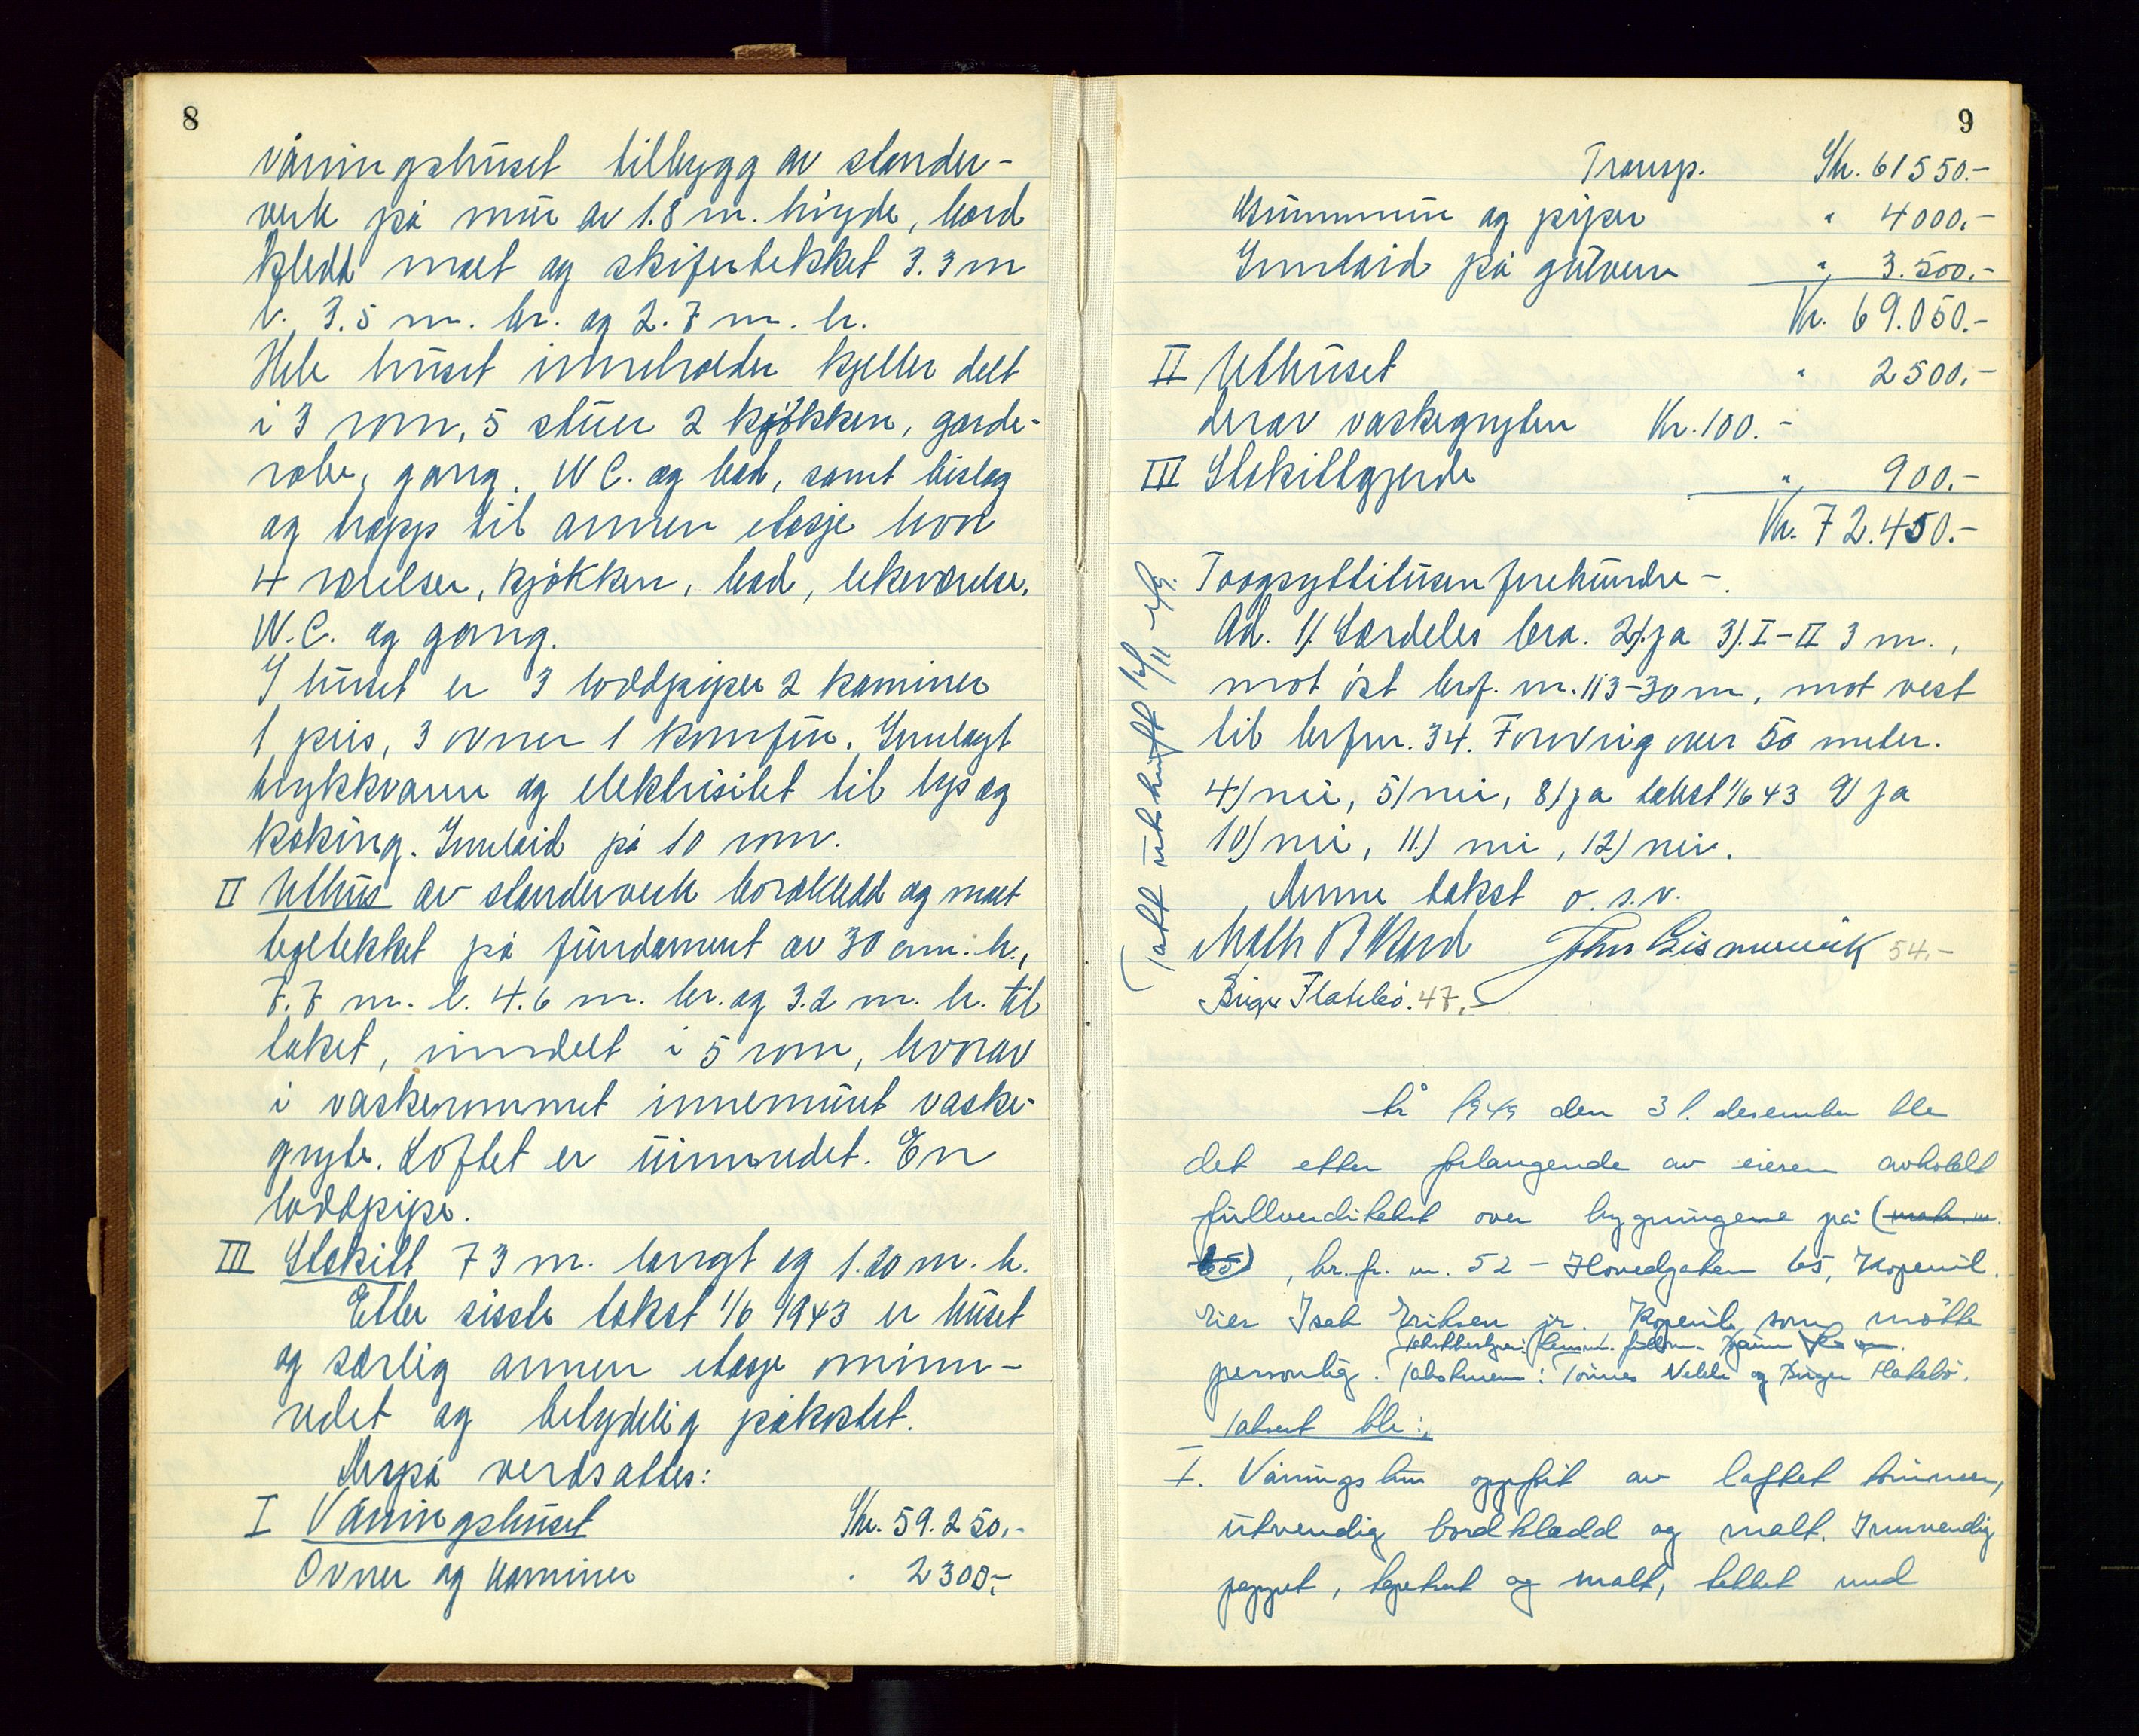 8
våningshuset tilbygg av stender-
verk på mur av 1.8 m. höyde, bord
kledd malt og skifertekket 3.3 m
l. 3.5 m. br. og 2.7 m. h.
Hele huset inneholder kjeller delt
i 3 rom, 5 stuer 2 kjökken, garde-
robe, gang. W C. og bad, samt bislag
og trapp til annen etasje hvor
4 værelser, kjökken, bad,
W.C. og gang.
I huset er 3 loddpiper 2 kaminer
1 peis, 3 ovner 1 komfur. Innlagt
trykkvann og elektrisitet til lys og
koking. Innlaid på 10 rom.
II Uthus av stenderverk bordkledd og malt
tegltekket på fundament av 30 cm. h.,
7.7 m. l. 4.6 m. br. og 3.2 m. h. til
taket, inndelt i 5 rom, hvorav
i vaskerommet innemuret vaske-
gryte. Loftet er uinnredet. En
loddpipe.
III Stakitt 73 m. langt og 1.20 m. h.
Etter siste takst 1/6 1943 er huset
og særlig annen etasje ominn-
redet og betydelig påkostet.
Derpå verdsattes:
I Våningshuset Kr. 59.250.-
Ovner og kaminer " 2300.-
9
Transp. Kr. 61550.-
Grunnmur og piper " 4000.-
Innlaid på gulvene " 3.500.-
Kr. 69.050.-
II Uthuset " 2500.-
derav vaskegryten Kr. 100.-
III Stakittgjerde " 900.-
Kr. 72.450.-
Toogsyttitusen firehundre -.
Ad. 1/. Særdeles bra. 2/. ja 3/. I-II 3 m.,
mot öst brf. nr. 113-30 m, mot vest
til brfnr. 34. Forövrig over 50 meter.
4/ nei, 5/ nei, 8/ ja takst 1/6 43 9/ ja
10/ nei, 11/ nei, 12/ nei.
Denne takst o. s. v.
54.-
Birger Flatebö. 47,-
Takst utskrift
År 1949 den 31. desember ble
det etter forlangende av eieren avholdt
fullverditakst over bygningene på (matr. nr.
65), br. fr. nr. 52 - Hovedgaten 65, Kopervik.
Eier Isak Eriksen jr. Kopervik som mötte
personlig. Takstmenn: Tönnes og Birger Flatebö.
Taksert ble:
I. Våningshus oppfört av laftet tömmer,
utvendig bordkledd og malt. Innvendig
pappet, tapetsert og malt, tekket med